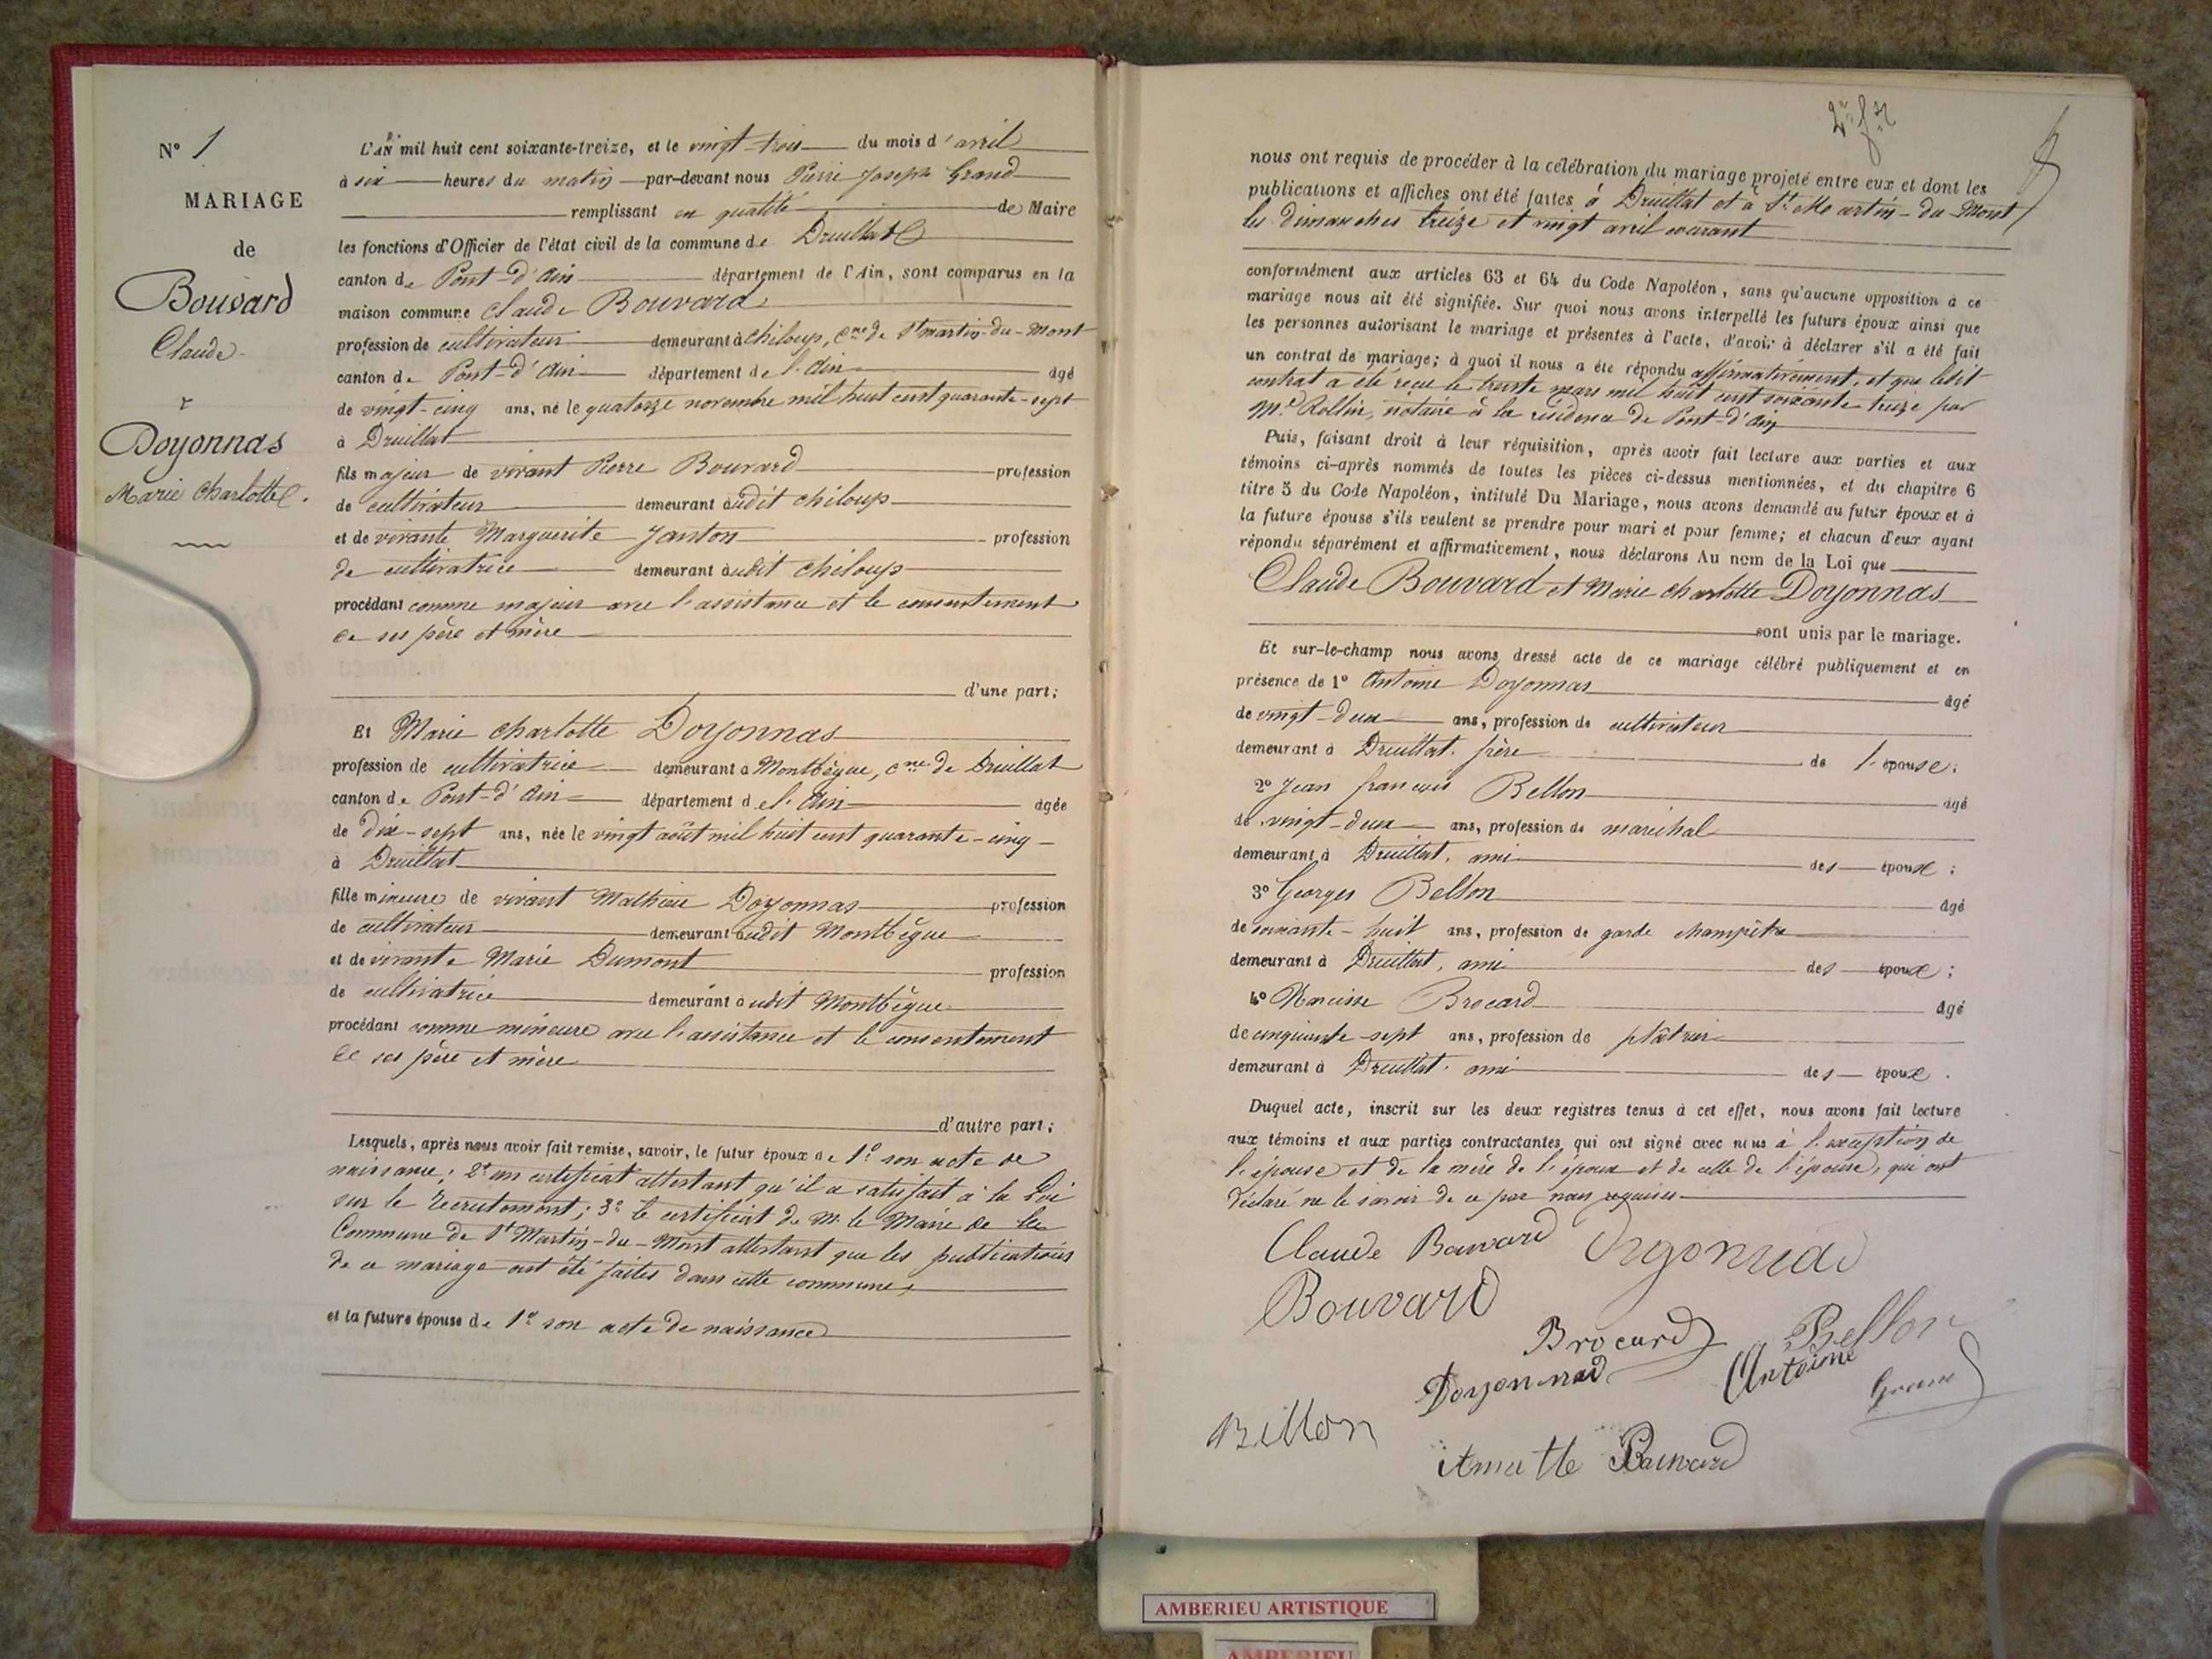 N° 1
MARIAGE
de
Bouvard
Claude
&
Doyonnas
Marie Charlotte.
L'AN mil huit cent soixante-treize, et le vingt-trois du mois d'avril
à six heures du matin par-devant nous Pierre Joseph Grand
remplissant en qualité de Maire
les fonctions d'Officier de l'état civil de la commune de Druillat
canton de Pont-d'Ain département de l'Ain, sont comparus en la
maison commune Claude Bouvard
profession de cultivateur demeurant à Chiloup, cne de St martin-du-Mont
canton de Pont-d'Ain département de l'Ain agé
de vingt-cinq ans, né le quatorze novembre mil huit cent quarante-sept
à Druillat
fils majeur de vivant Pierre Bouvard profession
de cultivateur demeurant audit Chiloup
et de vivante Marguerite Janton profession
de cultivatrice demeurant audit Chiloup
procédant comme majeur avec l'assistance et le consentement
de ses père et mère
d'une part;
Et Marie Charlotte Doyonnas
profession de cultivatrice demeurant à Montbègue, cne de Druillat
canton de Pont-d'Ain département de l'Ain agée
de dix-sept ans, née le vingt août mil huit cent quarante-cinq
à Druillat
fille mineure de vivant Mathieu Doyonnas profession
de cultivateur demeurant audit Montbègue
et de vivante Marie Dumont profession
de cultivatrice demeurant audit Montbègue
procédant comme mineure avec l'assistance et le consentement
de ses père et mère
d'autre part;
Lesquels, après nous avoir fait remise, savoir, le futur époux de 1° son acte de
naissance; 2° un certificat attestant qu'il a satisfait à la Loi
sur le Recrutement; 3° le certificat de M. le Maire de la
Commune de St Martin-du-Mont attestant que les publications
de ce mariage ont été faites dans cette commune,
et la future épouse de 1° son acte de naissance
nous ont requis de procéder à la célébration du mariage projeté entre eux et dont les
publications et affiches ont été faites à Druillat et à St Martin-du-Mont
les dimanches treize et vingt avril courant
conformément aux articles 63 et 64 du Code Napoléon, sans qu'aucune opposition à ce
mariage nous ait été signifiée. Sur quoi nous avons interpellé les futurs époux ainsi que
les personnes autorisant le mariage et présentes à l'acte, d'avoir à déclarer s'il a été fait
un contrat de mariage; à quoi il nous a été répondu affirmativement, et que ledit
contrat a été reçu le trente mars mil huit cent soixante treize par
Me Rollin, notaire à la résidence de Pont-d'Ain
Puis, faisant droit à leur réquisition, après avoir fait lecture aux parties et aux
témoins ci-après nommés de toutes les pièces ci-dessus mentionnées, et du chapitre 6
titre 5 du Code Napoléon, intitulé Du Mariage, nous avons demandé au futur époux et à
la future épouse s'ils veulent se prendre pour mari et pour femme; et chacun d'eux ayant
répondu séparément et affirmativement, nous déclarons Au nom de la Loi que
Claude Bouvard et Marie Charlotte Doyonnas
sont unis par le mariage.
Et sur-le-champ nous avons dressé acte de ce mariage célébré publiquement et en
présence de 1° Antoine Doyonnas agé
de vingt-deux ans, profession de cultivateur
demeurant à Druillat, frère de l'épouse;
2° Jean françois Bellon agé
de vingt-deux ans, profession de maréchal
demeurant à Druillat, ami des époux;
3° Georges Bellon agé
de soixante-huit ans, profession de garde champêtre
demeurant à Druillat, ami des époux;
4° Narcisse Brocard agé
de cinquante-sept ans, profession de plâtrier
demeurant à Druillat, ami des époux.
Duquel acte, inscrit sur les deux registres tenus à cet effet, nous avons fait lecture
aux témoins et aux parties contractantes qui ont signé avec nous à l'exception de
l'épouse et de la mère de l'époux et de celle de l'épouse, qui ont
déclaré ne le savoir de ce par nous requises
Claude Bouvard Doyonnas
Bouvard
Brocard Bellon
Doyonnas Antoine Grand
Billon
Bouvard
AMBERIEU ARTISTIQUE
AMBERIEU